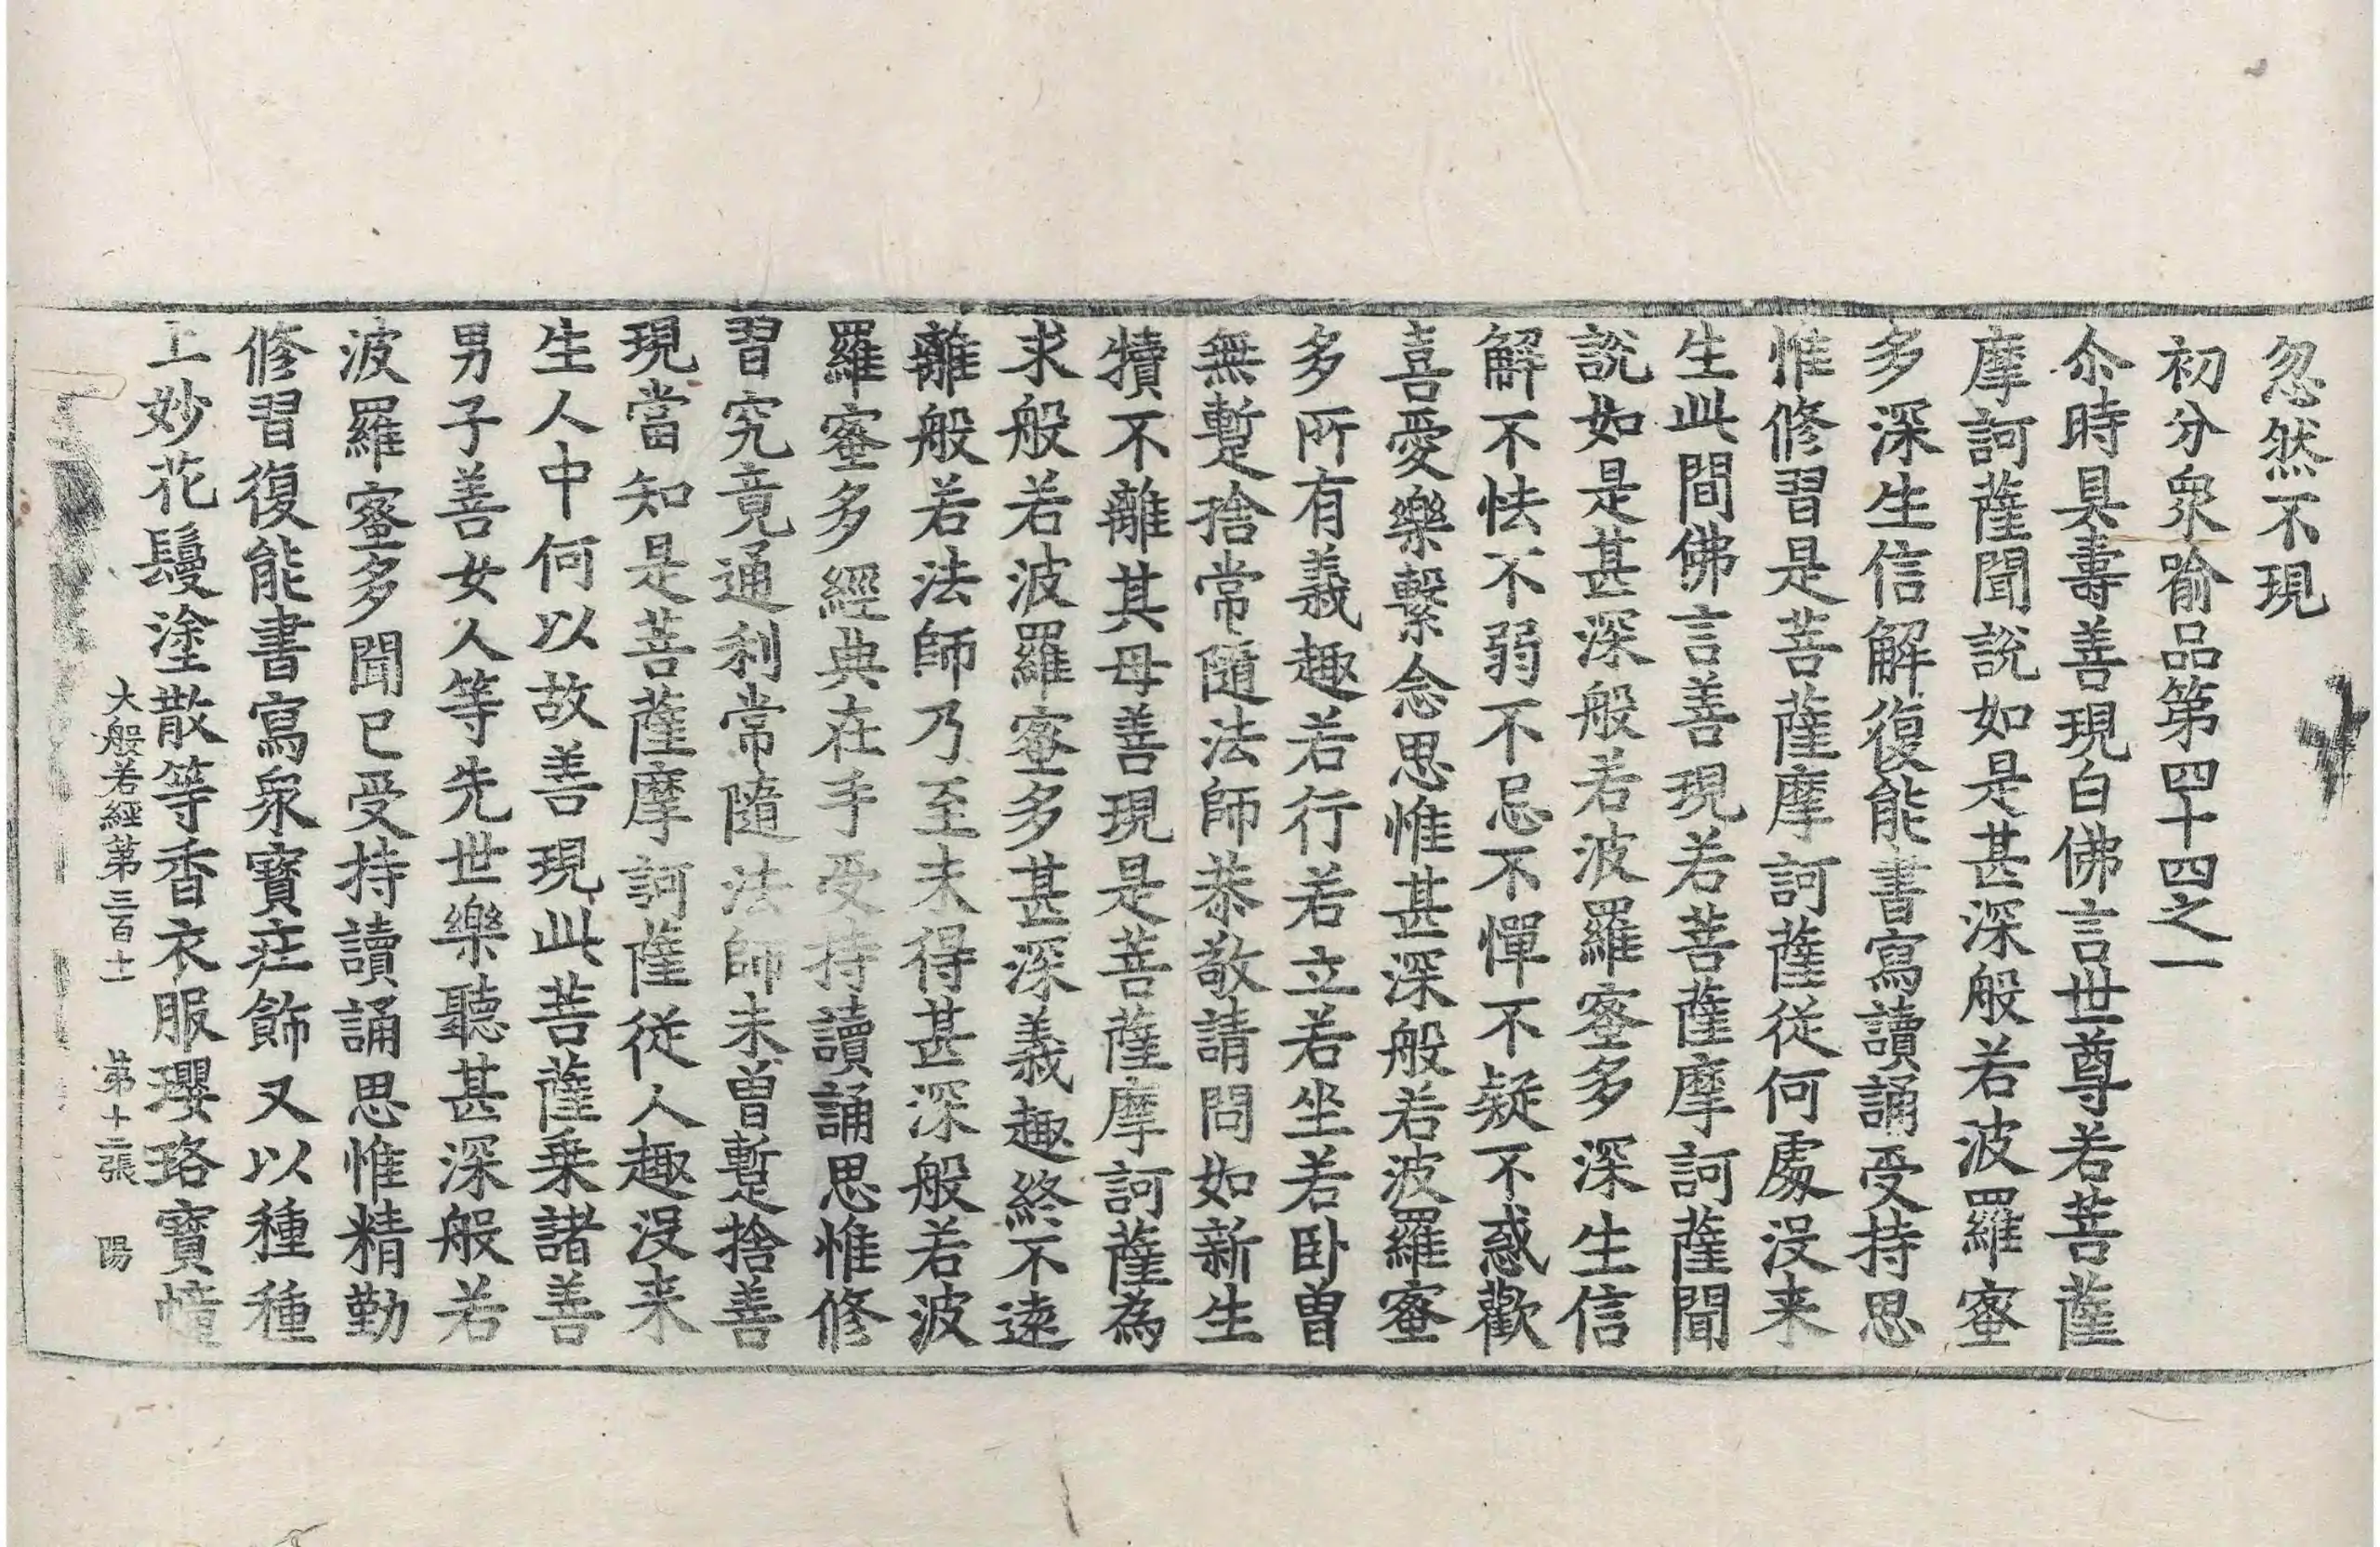 忽然不現
初分衆喻品第四十四之一
尒時具壽善現白佛言世尊若菩薩
摩訶薩聞說如是甚深般若波羅蜜
多深生信解復能書寫讀誦受持思
惟修習是菩薩摩訶薩從何處沒来
生此間佛言善現若菩薩摩訶薩聞
說如是甚深般若波羅蜜多深生信
解不怯不弱不忌不憚不疑不惑歡
喜愛樂繫念思惟甚深般若波羅蜜
多所有義趣若行若立若坐若卧曽
無蹔捨常隨法師恭敬請問如新生
犢不離其母善現是菩薩摩訶薩為
求般若波羅蜜多甚深義趣終不遠
離般若法師乃至未得甚深般若波
羅蜜多經典在手受持讀誦思惟修
習究竟通利常隨法師未曽蹔捨善
現當知是菩薩摩訶薩從人趣沒来
生人中何以故善現此菩薩乗諸善
男子善女人等先世樂聽甚深般若
波羅蜜多聞已受持讀誦思惟精勤
修習復能書寫衆寶莊飾又以種種
上妙花鬘塗散等香衣服瓔珞寶幢
大般若經第三百十一 第十二張 陽